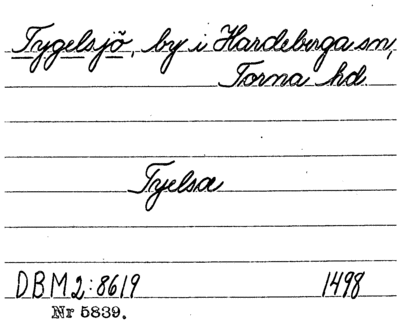 Tygelsjö, by i Hardeberga sn,
Torna hd.
Tyelsa
DBM 2:8619 1498
Nr 5839.